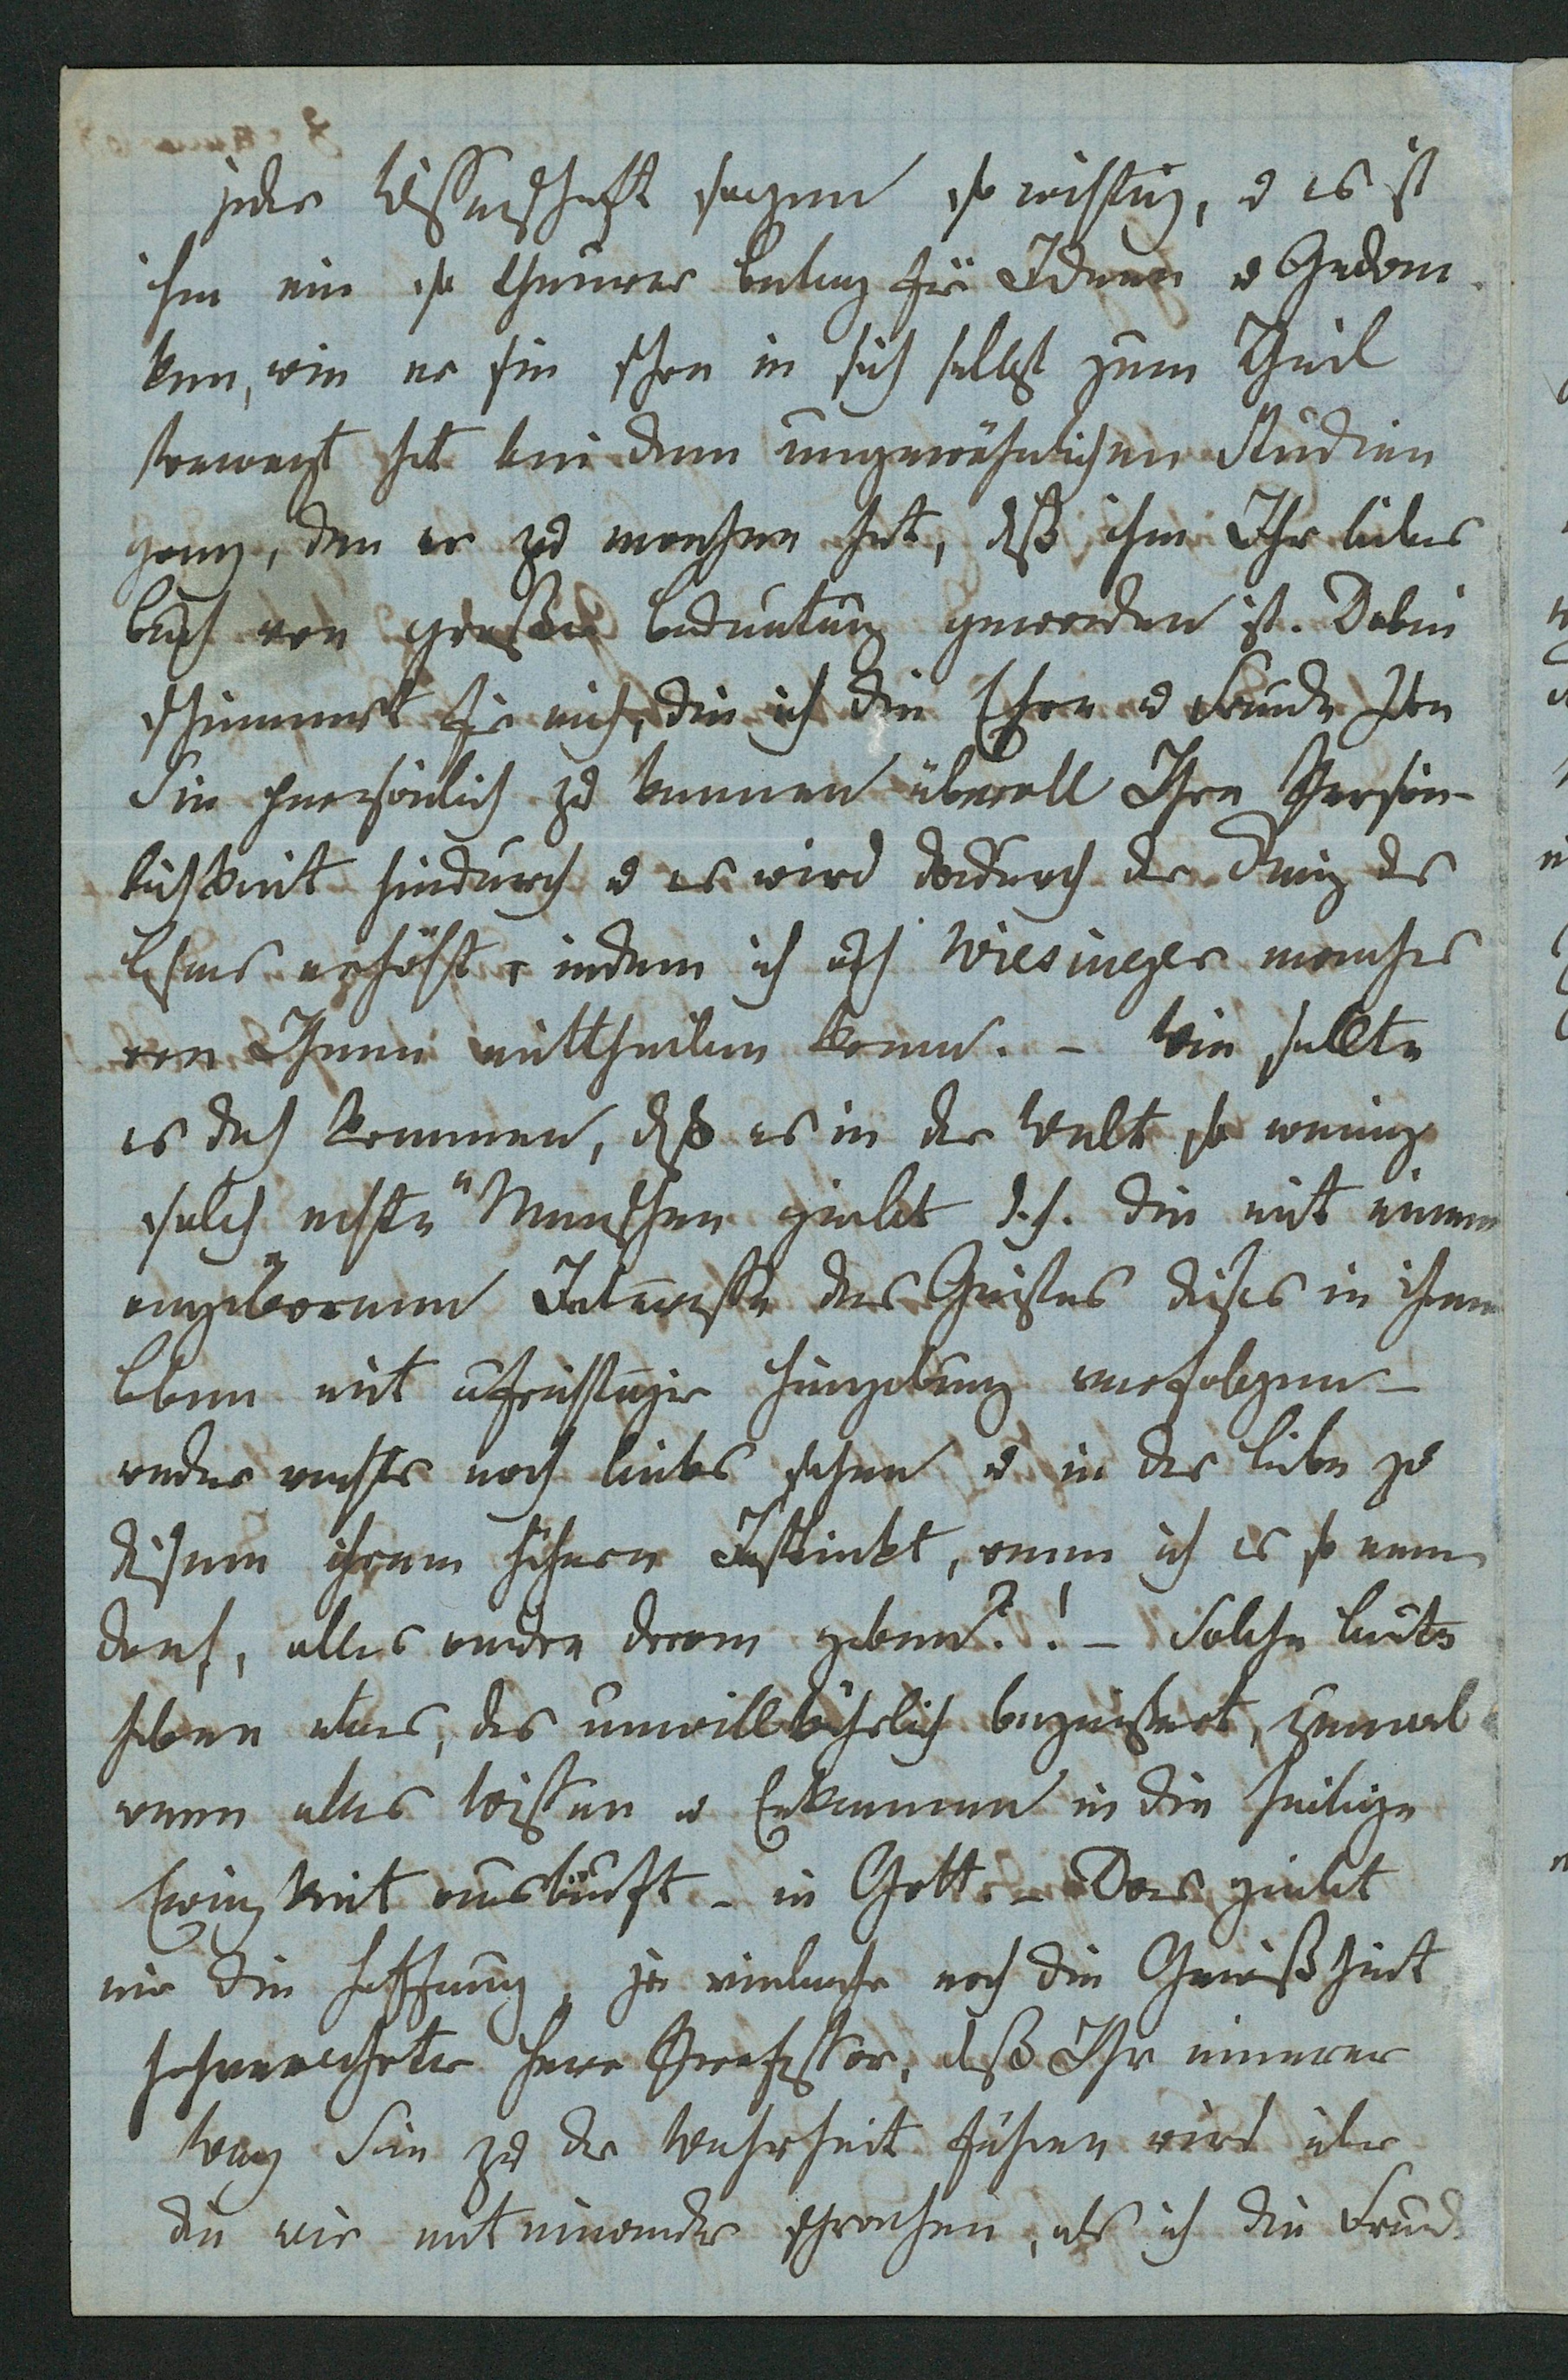 jeder Wissenschaft sagen so wichtig, u es ist
ihm ein so theurer Beleg für Ideen u Gedan-
ken, wie er sie schon in sich selbst zum Theil
bewegt hat bei dem ungewöhnlichen Studien
gang, den er zu machen hat, daß ihm Ihr liebes
Buch von großer Bedeutung geworden ist. Dabei
schimmert für mich, die ich die Ehre u Freude habe
Sie persönlich zu kennen überall Ihre Persön-
lichkeit hindurch u es wird dadurch der Reiz des
Lesens erhöht, indem ich auch Wiesinger manches
von Ihnen mittheilen kann. – Wie sollte
es doch kommen, daß es in der Welt so wenig
solch ächte Menschen giebt d.h. die mit einem
angeborenen Interesse des Geistes dieses in ihrem
Leben mit aufrichtiger Hingebung verfolgen –
weder rechts noch links sehen u in der Liebe zu
diesem ihrem höhern Instinkt, wenn ich es so nennen
darf, alles andre daran geben?! – Solche Leute
haben etwas, das unwillkührlich begeistert, zumal
wenn alles Wissen u Erkennen in die heilige
Ewigkeit ausläuft – in Gott. – Das giebt
mir die Hoffnung, ja vielmehr noch die Gewißheit
hochverehrter Herr Professor, daß Ihr innerer
Weg Sie zu der Wahrheit führen wird über
die wir mit einander sprachen, als ich die Freude